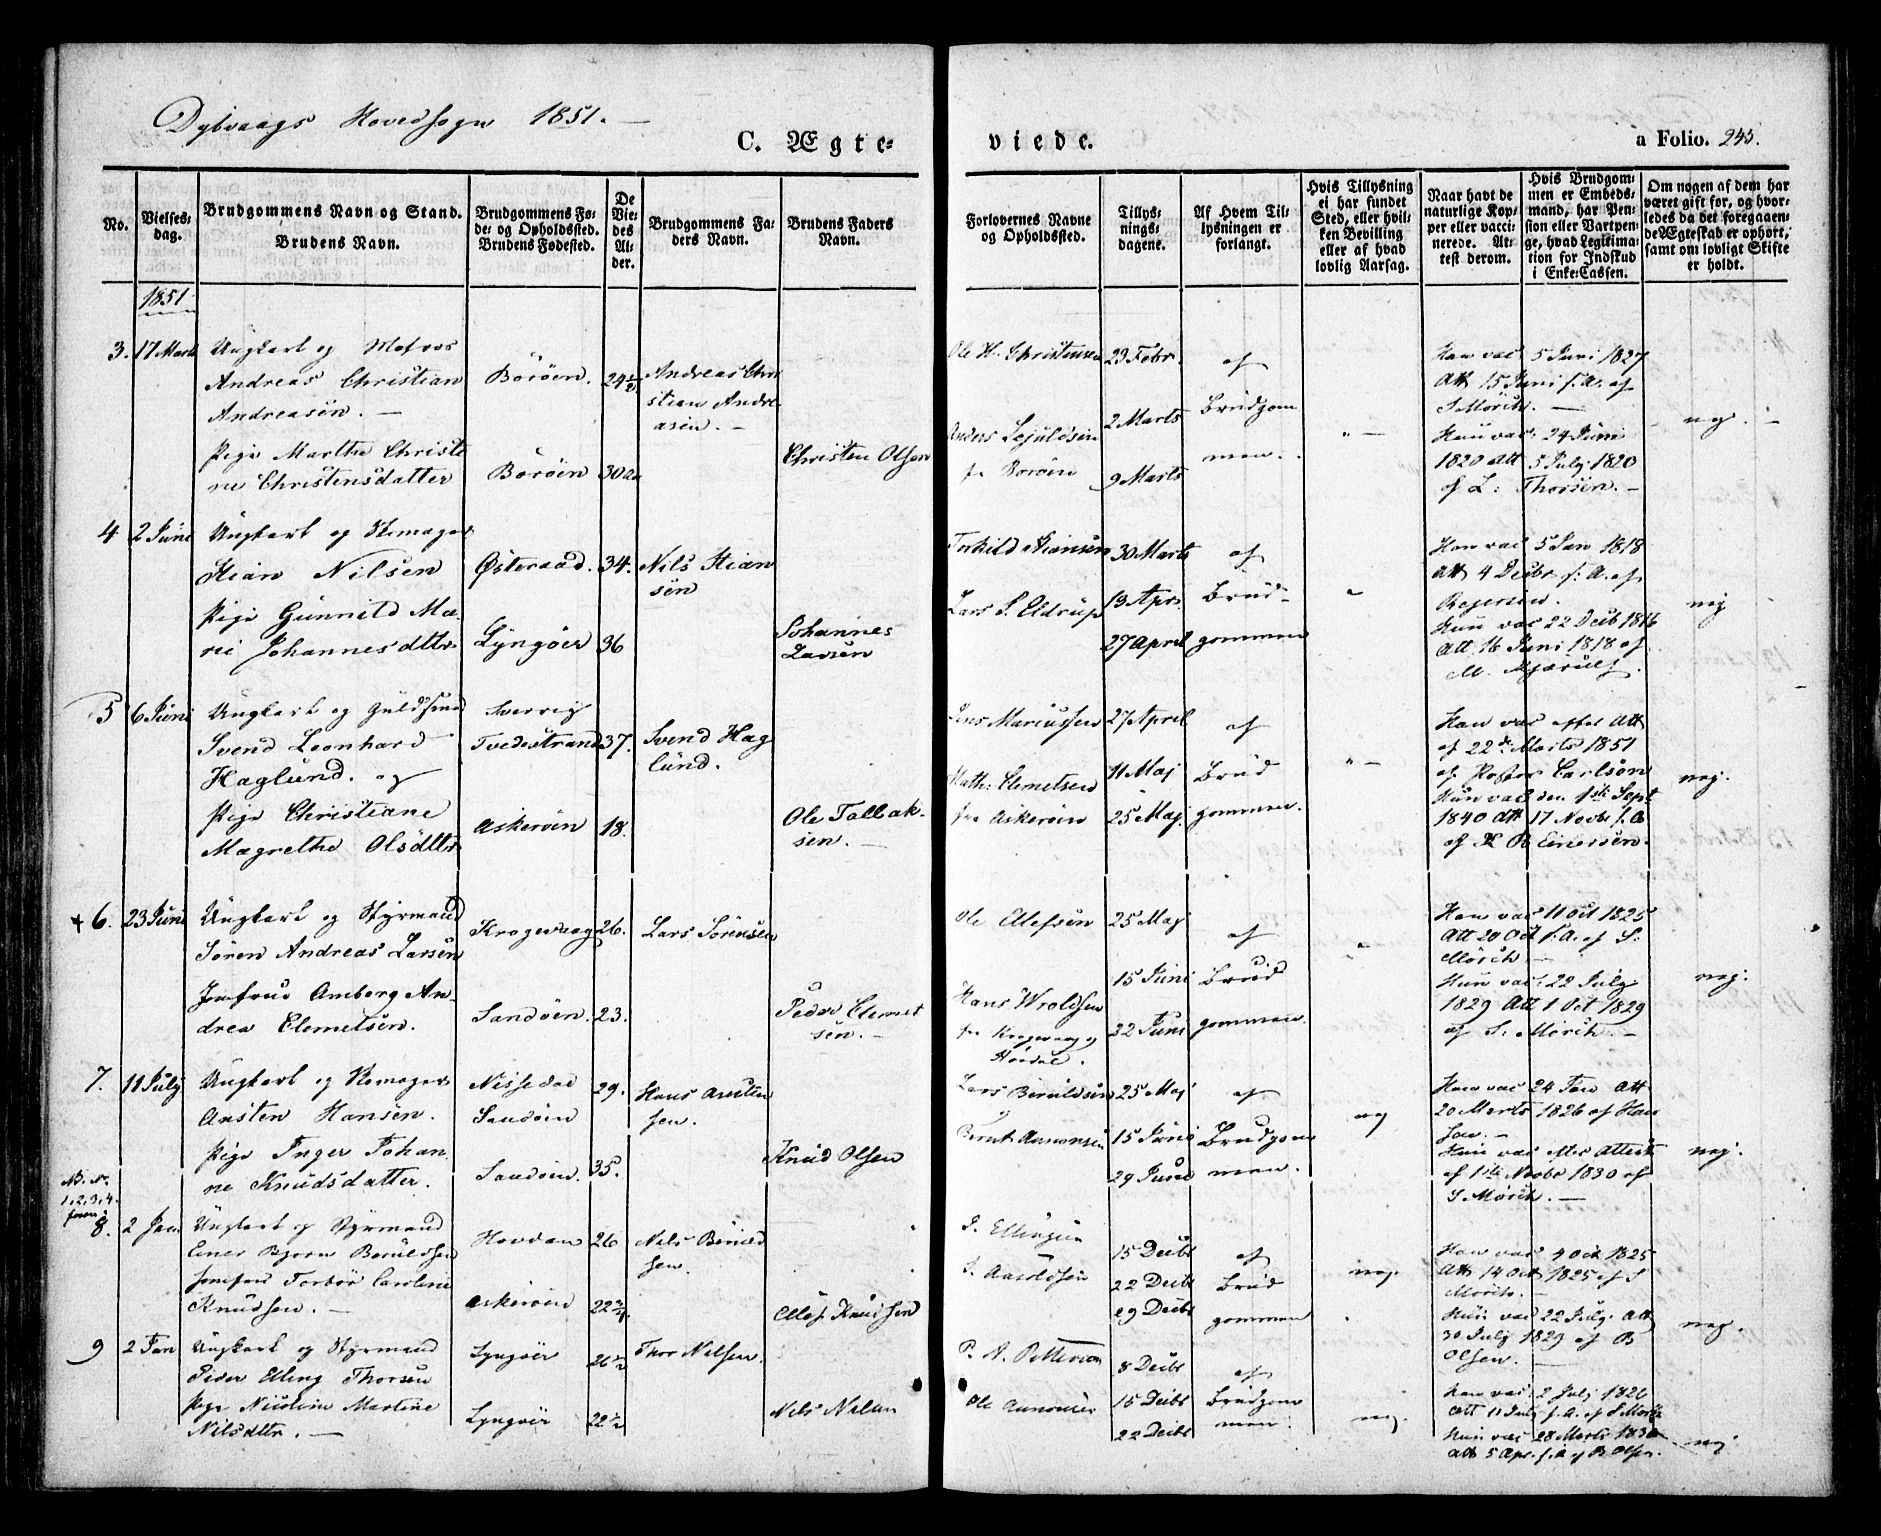 Dybvaags Hovedsogn 1851. —
C. Ægte-
viede.
a Folio. 245.
No.
Vielses-
dag.
Brudgommens Navn og Stand.
Brudens Navn.
Brudgommens Fø-
de- og Opholdssted.
Brudens Fødested.
De
Vie-
des
Al-
der.
Brudgommens Fa-
ders Navn.
Brudens Faders
Navn.
Forlovernes Navne
og Opholdssted.
Tillys-
nings-
dagene.
Af Hvem Til-
lysningen er
forlangt.
Hvis Tillysning
ei har fundet
Sted, eller hvil-
ken Bevilling
eller af hvad
lovlig Aarsag.
Naar havt de
naturlige Kop-
per eller vacci-
nerede. At-
test derom.
Hvis Brudgom-
men er Embeds-
mand, har Pen-
sion eller Vartpen-
ge, hvad Legitima-
tion for Indskud
i Enke-Cassen.
Om nogen af dem har
været gift før, og hvor-
ledes da det foregaaen-
de Ægteskab er ophørt,
samt om lovligt Skifte
er holdt.
1851
3. 17 Marts
Ungkarl og Matros
Andreas Christian
Andreasen. —
Pige Marthe Christi
ne Christensdatter
Borøen.
Borøen
24½
30
Andreas Chri
stian Andre-
asen. —
Christen Olsen
Ole H. Christensen
Anders
fr Borøen
23 Febr.
2 Marts
9 Marts
af
Brudgom
men.
Han vac 5 Juni 1827
Att 15 Juni s. A. af
S Mørch. —
Hun vac: 24 Juni
1820 Att 5 July 1820
af L: Thorsen. —
neg. —
4 2 Juni
Ungkarl og Skomager
Stian Nilsen
Pige Gunnild Ma-
rie Johannesdttr
Østeraad.
Lyngøer
34.
36
Nils Stian
sen
Johannes
Larsen
Torkild Stiansen
Lars S. Eldrup
30 Marts
13 Apr.
27 April
af
Brud-
gommen
Han vac 5 Jan 1818
Att 4 Decbr s: A. af
Regersen.
Hun vac 22 Decb 1816
Att 16 Juni 1818 af
M.
nej
5 6 Juni
Ungkarl og Guldsmed
Svend Leonhard
Haglund. og
Pige Christiane
Magrethe Olsdttr
Sverrig
Tvedestrand
Askerøen
37.
18.
Svend Hag
lund.
Ole Tallak-
sen. —
Jens Mariussen
Math: Clemetsen
fra Askerøen
27 April
11 Maj
25 Maj
af
Brud
gommen.
Han vac efter Att
af 22de Marts 1851
af Pastor Carlson
Hun vac den 1ste Sept
1840 Att 17 Novbr s. A
af R Einersen.
nej.
+ 6. 23 Juni
Ungkarl og Styrmand
Søren Andreas Larsen
Jomfrue Amborg An-
drea Clemetsen.
Kragevaag
Sandøen.
26.
23.
Lars Sørensen
Peder Clemet
sen. —
Ole Ellefsen
Hans Wroldsen
fra Kragevaag og
25 Maj
15 Juni
22 Juni
af
Brud
gommen.
Han vac 11 Oct 1825
Att 20 Oct s. A. af S:
Mørch. —
Hun vac: 22 July
1829 Att 1 Oct 1829
af S: Mørch. —
nej.
7. 11 July
Ungkarl og Skomager
Austen Hansen.
Pige Inger Johan
ne Knudsdatter.
Nissedal
Sandøen
Sandøen.
29.
35.
Hans Austen
sen.
Knud Olsen
Lars Beruldsen
Bernt Aanonsen
25 Maj
15 Juni
29 Juni
af
Brudgom
men.
nej
Han vac 24 Jan Att
20 Marts 1826 af Han
sen. —
Hun vac efter Attest
af 1ste Novbr 1830 af
S Mørch. —
nej.
NB. No.
1, 2, 3, 4.
foran
8. 2 Jan
Ungkarl og Styrmand
Einer Bjorn Beruldsen
Jomfru Torbør Caroline
Knudsen. —
Hovdan
Askerøen
26
22¾
Nils Beruld
sen.
Ellef Knudsen
J. Ellingsen
15 Decbr
22 Decbr
29 Decbr
af
Brud
gommen
nej.
Han vac 4 Oct 1825
Att 14 Oct 1825 af S
Mørch.
Hun vac 22 July Att
30 July 1829 af B
Olsen. —
nej.
9 2 Jan
Ungkarl og Styrmand
Peder Elling Thorsen
Pige Nicoline Martine
Nilsdttr. —
Lyngøer
Lyngøer
26½
22½
Thor Nilsen.
Nils Nilsen
P. A. Pettersen
Ole Aanonsen
8 Decbr
15 Decbr
22 Decbr
af
Brudgom
men.
nej.
Han vac: 2 July 1826
Att 11 July s. A. af S Mørch
Hun vac 28 Marts 1830
Att 5 Apr. s. A af B Olsen.
nej